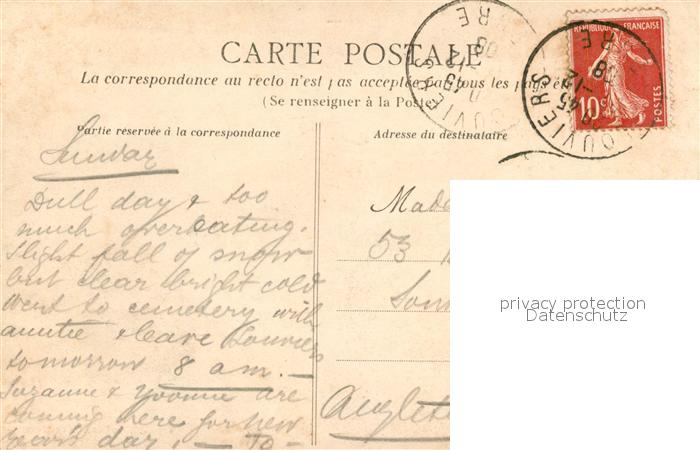 CARTE POSTALE
La correspondance au recto n'est pas acceptée par tous les pays
(Se renseigner à la Poste)
Partie réservée à la correspondance
Adresse du destinataire
REPUBLIQUE FRANÇAISE
10c
POSTES
LOUVIERS
EURE
Sunday
Dull day & too
much overeating.
Slight fall of snow
but clear bright cold
Went to cemetery with
auntie & leave Louviers
tomorrow 8 am. —
Suzanne & Yvonne are
coming here for New
Year's day. — To —
Mada
53
Lon
Anglete
privacy protection
Datenschutz